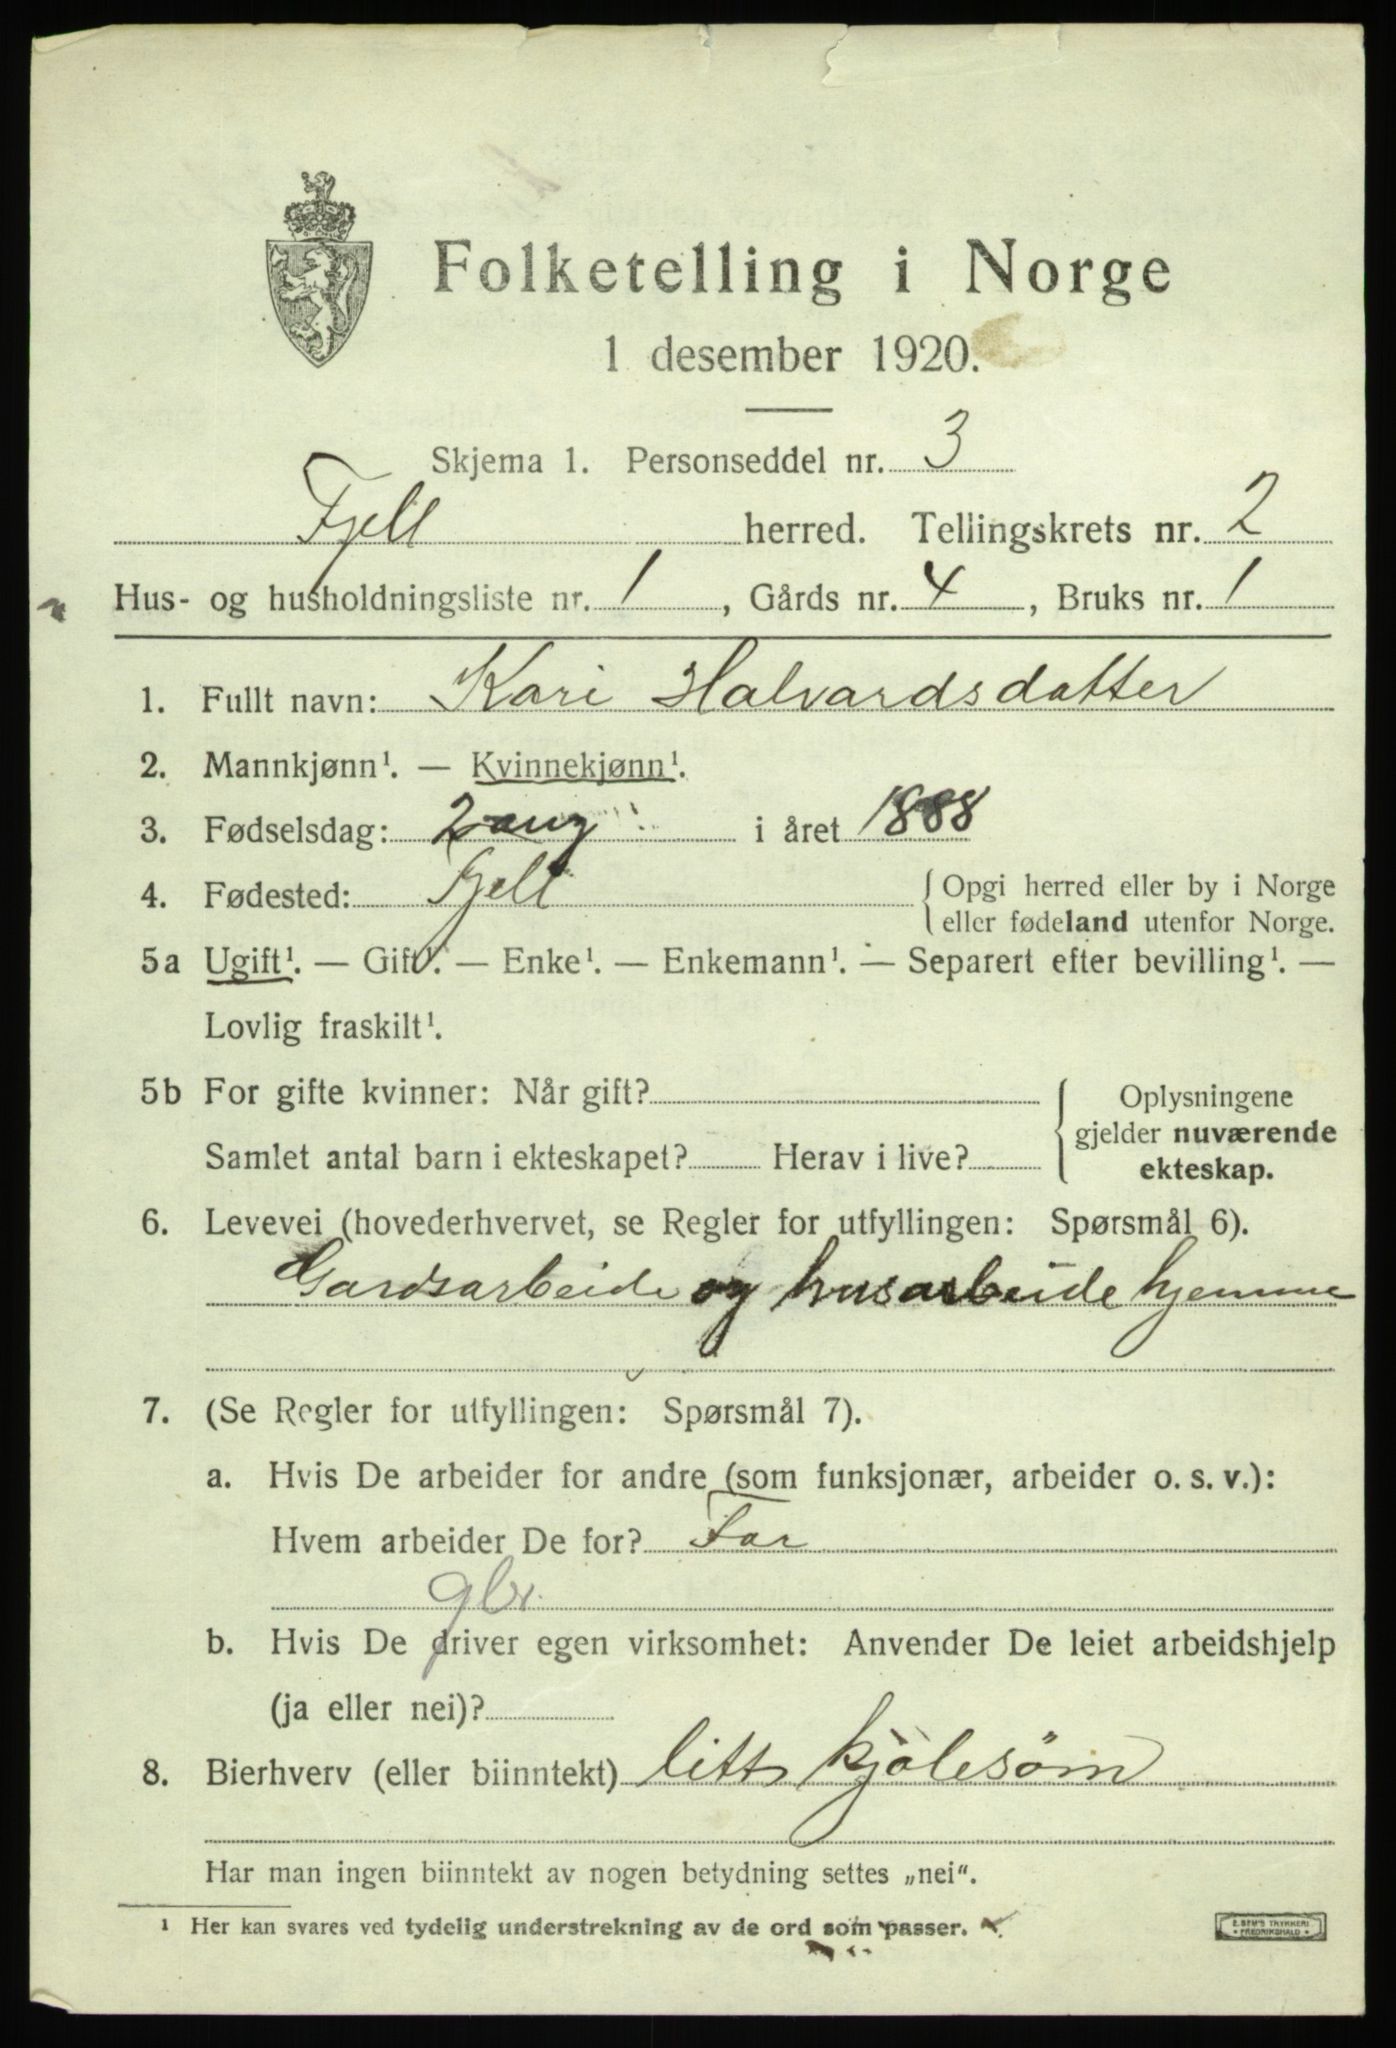 Folketelling i Norge
1 desember 1920.
Skjema 1. Personseddel nr. 3
Fjell herred. Tellingskrets nr. 2
Hus- og husholdningsliste nr. 1, Gårds nr. 4, Bruks nr. 1
1. Fullt navn: Kari Halvardsdatter
2. Mannkjønn¹. — Kvinnekjønn¹.
3. Fødselsdag: 2 aug i året 1888
4. Fødested: Fjell { Opgi herred eller by i Norge
eller fødeland utenfor Norge.
5a Ugift¹. — Gift¹. — Enke¹. — Enkemann¹. — Separert efter bevilling¹. —
Lovlig fraskilt¹.
5b For gifte kvinner: Når gift? { Oplysningene
gjelder nuværende
Samlet antal barn i ekteskapet? Herav i live? ekteskap.
6. Levevei (hovederhvervet, se Regler for utfyllingen: Spørsmål 6).
Gardsarbeide og husarbeide hjemme
7. (Se Regler for utfyllingen: Spørsmål 7).
a. Hvis De arbeider for andre (som funksjonær, arbeider o. s. v.):
Hvem arbeider De for? Far
gbr.
b. Hvis De driver egen virksomhet: Anvender De leiet arbeidshjelp
(ja eller nei)?
8. Bierhverv (eller biinntekt) litt kjolesøm
Har man ingen biinntekt av nogen betydning settes „nei“.
¹ Her kan svares ved tydelig understrekning av de ord som passer.
E. SEM'S TRYKKERI
FREDRIKSHALD